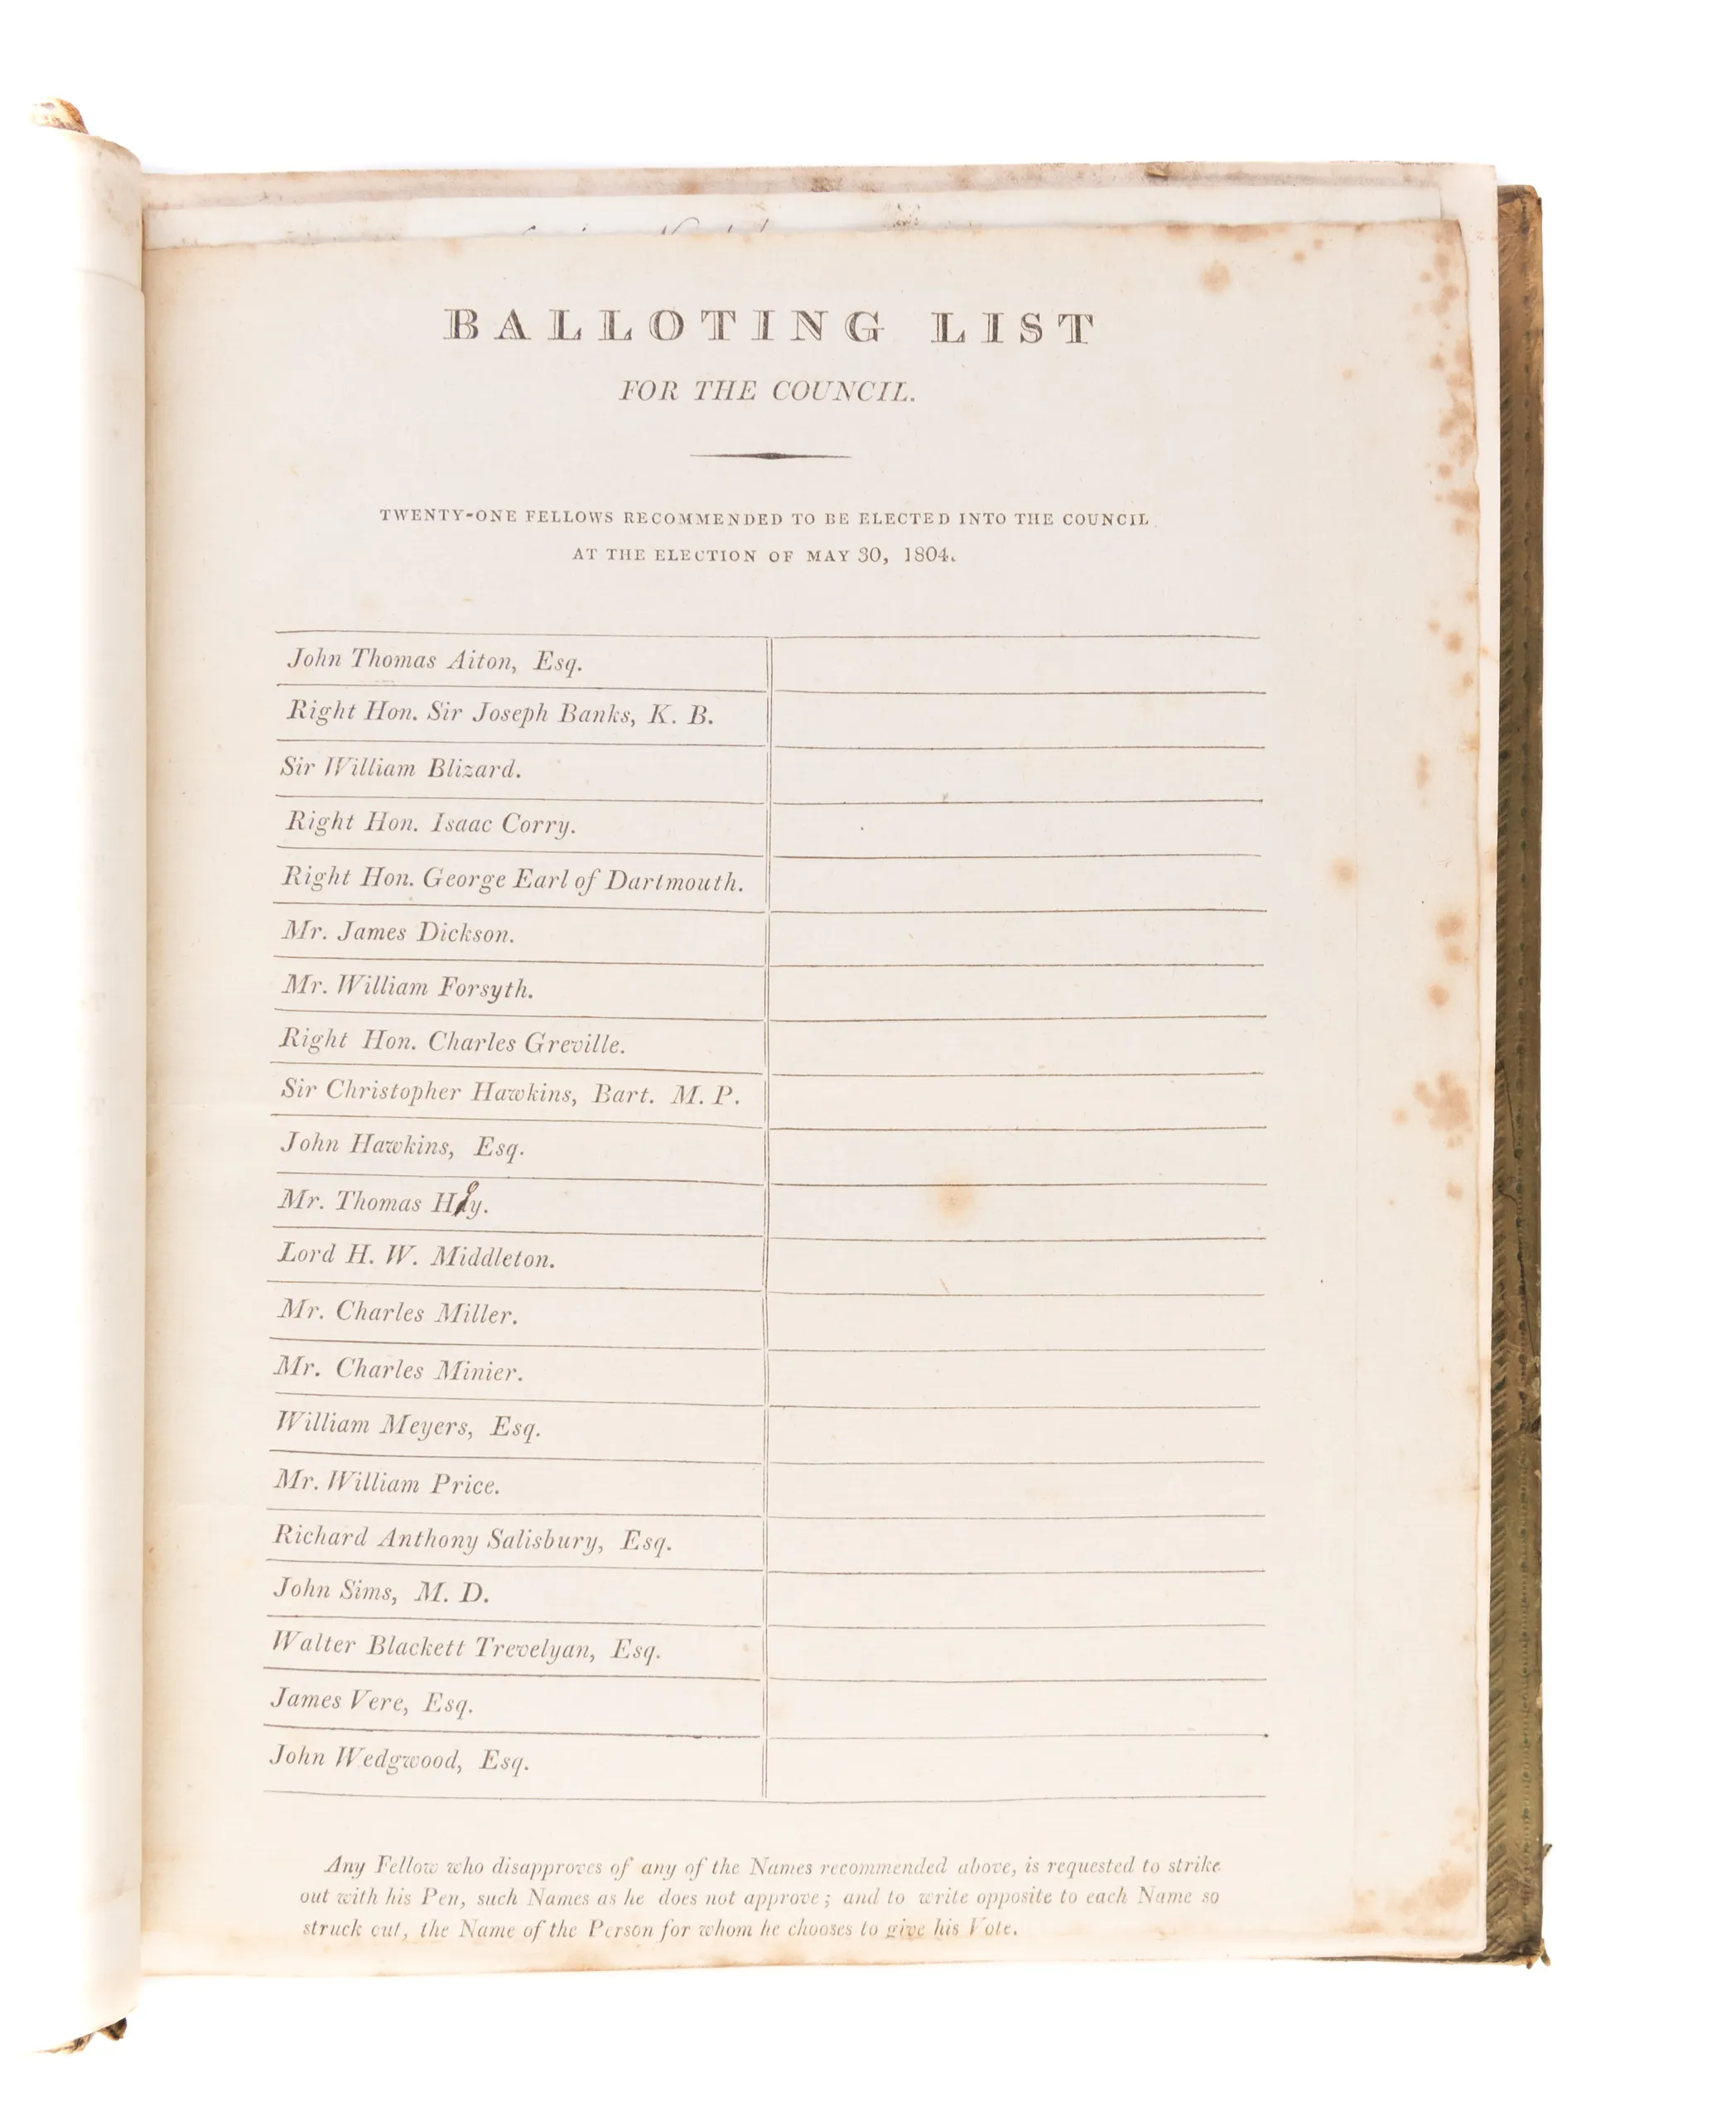 BALLOTING LIST
FOR THE COUNCIL.
TWENTY-ONE FELLOWS RECOMMENDED TO BE ELECTED INTO THE COUNCIL
AT THE ELECTION OF MAY 30, 1804.
John Thomas Aiton, Esq.
Right Hon. Sir Joseph Banks, K. B.
Sir William Blizard.
Right Hon. Isaac Corry.
Right Hon. George Earl of Dartmouth.
Mr. James Dickson.
Mr. William Forsyth.
Right Hon. Charles Greville.
Sir Christopher Hawkins, Bart. M. P.
John Hawkins, Esq.
Mr. Thomas
Lord H. W. Middleton.
Mr. Charles Miller.
Mr. Charles Minier.
William Meyers, Esq.
Mr. William Price.
Richard Anthony Salisbury, Esq.
John Sims, M. D.
Walter Blackett Trevelyan, Esq.
James Vere, Esq.
John Wedgwood, Esq.
Any Fellow who disapproves of any of the Names recommended above, is requested to strike
out with his Pen, such Names as he does not approve; and to write opposite to each Name so
struck out, the Name of the Person for whom he chooses to give his Vote.